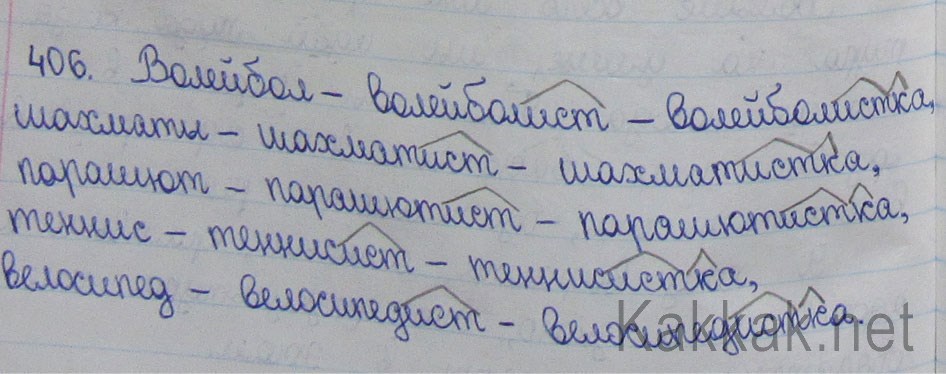 406. Волейбол – волейболист – волейболистка,
шахматы – шахматист – шахматистка,
парашют – парашютист – парашютистка,
теннис – теннисист – теннисистка,
велосипед – велосипедист – велосипедистка.
Kakkak.net